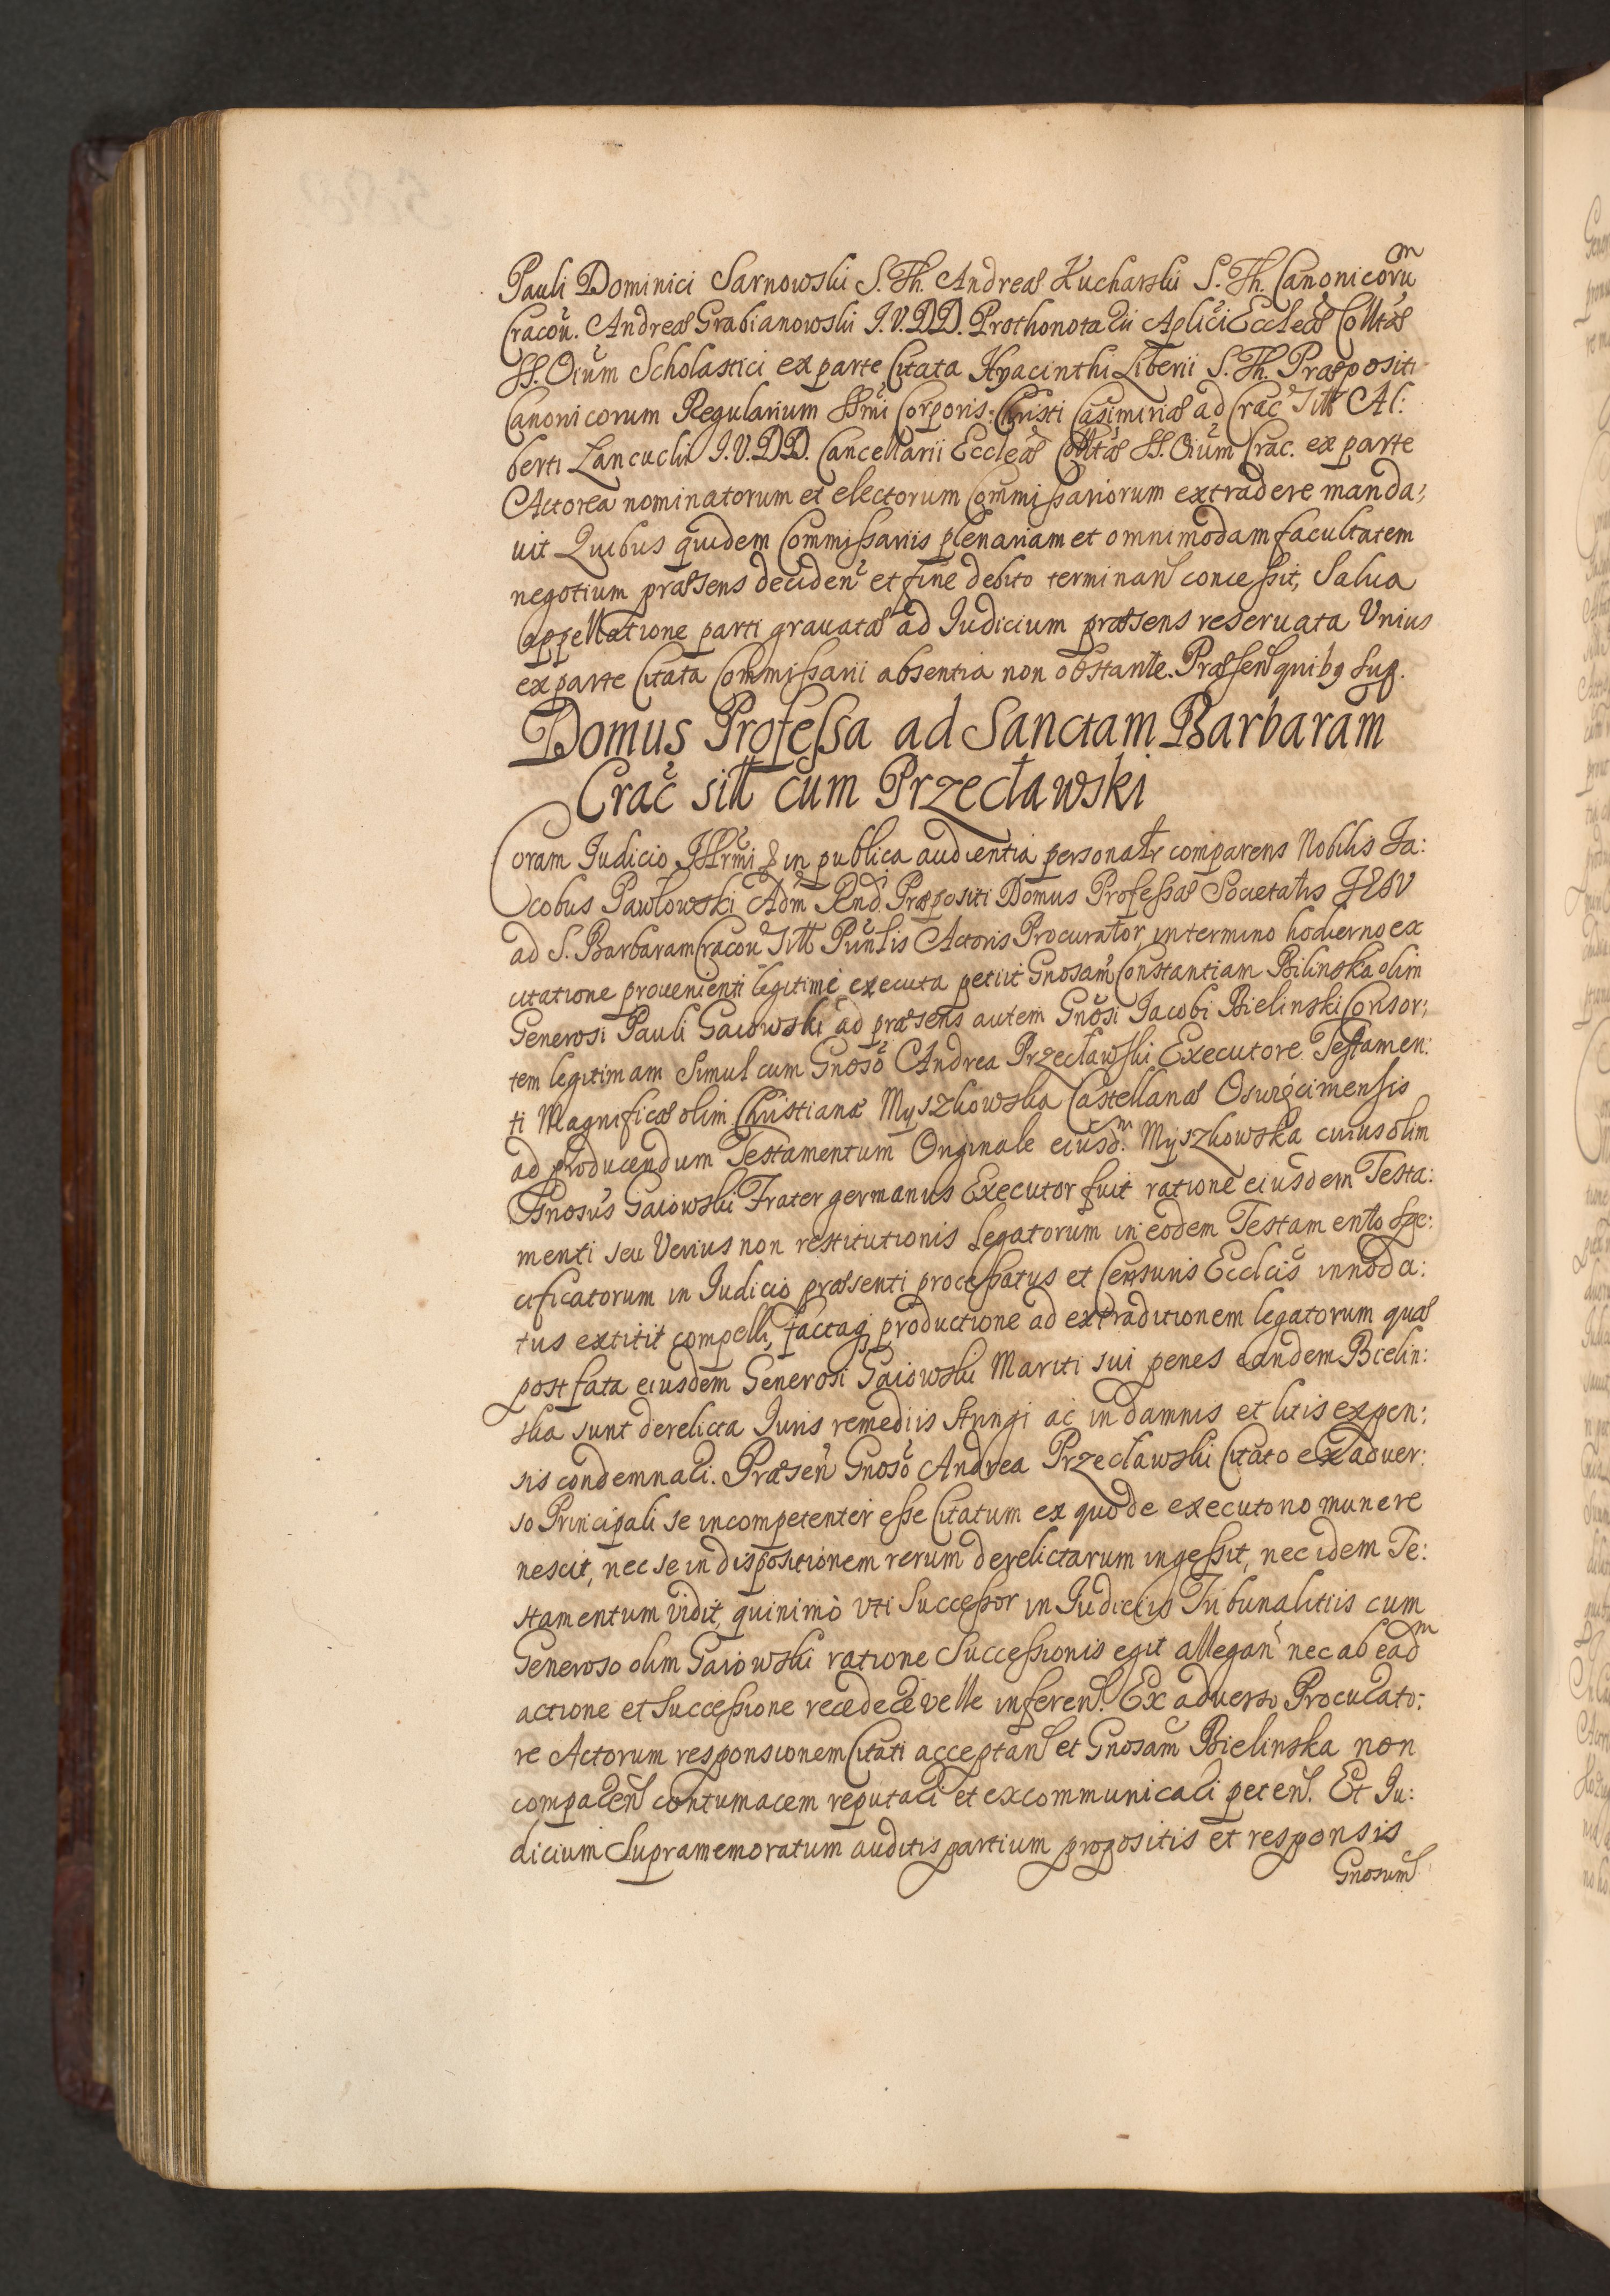 Pauli Dominici Sarnowski S. Th. Andreæ Kucharski S. Th. Canonicoru͞m
Cracou. Andreæ Grabianowski I. V. DD. Prothonotarii Aplici Eccleæ Colltæ
SS. Oium Scholastici ex parte Citata Hyacinthi Liberii S. Th. Præpositi
Canonicorum Regularium SSmi Corporis Christi Casimiriæ ad Crac Sitt Al:
berti Lancucki I. V. DD. Cancellarii Eccleæ Colltæ SS. Oium Crac. ex parte
Actorea nominatorum et electorum Commissariorum extradere manda:
uit Quibus quidem Commissariis plenariam et omnimodam facultatem
negotium præsens deciden et fine debito terminan concessit, Salua
appellatione parti grauatæ ad Iudicium præsens reseruata Vnius
ex parte Citata Commissarii absentia non obstante. Præsen quibq Sup.
Domus Professa ad Sanctam Barbaram
Crac sitt cum Przecławski
Coram Iudicio IllRmi & in publica audientia personatr comparens Nobilis Ia:
cobus Pawłowski Adm Rnd Præpositi Domus Professæ Societatis IESV
ad S. Barbaram Cracou Sitt Punlis Actoris Procurator, in termino hodierno ex
citatione prouenienti legitimè executa petiit Gnosam Constantiam Bilinska olim
Generosi Pauli Gaiowski ad præsens autem Gnosi Iacobi Bielinski Consor:
tem legitimam Simul cum Gnoso Andrea Przecławski Executore Testamen:
ti Magnificæ olim Christianæ Myszkowska Castellanæ Osuięcimensis
ad producendum Testamentum Originale eiusdm Myszkowska cuius olim
Gnosus Gaiowski Frater germanus Executor fuit ratione eiusdem Testa:
menti seu Verius non restitutionis Legatorum in eodem Testamento Spe:
cificatorum in Iudicio præsenti processatus et Censuris Ecclcis innoda:
tus extitit compelli, factaq productione ad extraditionem legatorum quæ
post fata eiusdem Generosi Gaiowski Mariti sui penes eandem Bielin:
ska sunt derelicta Iuris remediis Stringi ac in damnis et litis expen:
sis condemnari. Præsen Gnoso Andrea Przecławski Citato ex aduer:
so Principali se incompetenter esse Citatum ex quo de executorio munere
nescit, nec se in dispositionem rerum derelictarum ingessit, nec idem Te:
stamentum vidit, quinimò vti Successor in Iudiciis Tribunalitiis cum
Generoso olim Gaiowski ratione Successionis egit allegan nec ab eadm
actione et Successione recedere velle inferen. Ex aduerso Procurato:
re Actorum responsionem Citati acceptan et Gnosam Bielinska non
comparen contumacem reputari et excommunicari peten. Et Iu:
dicium Supramemoratum auditis partium propositis et responsis
Gnosum